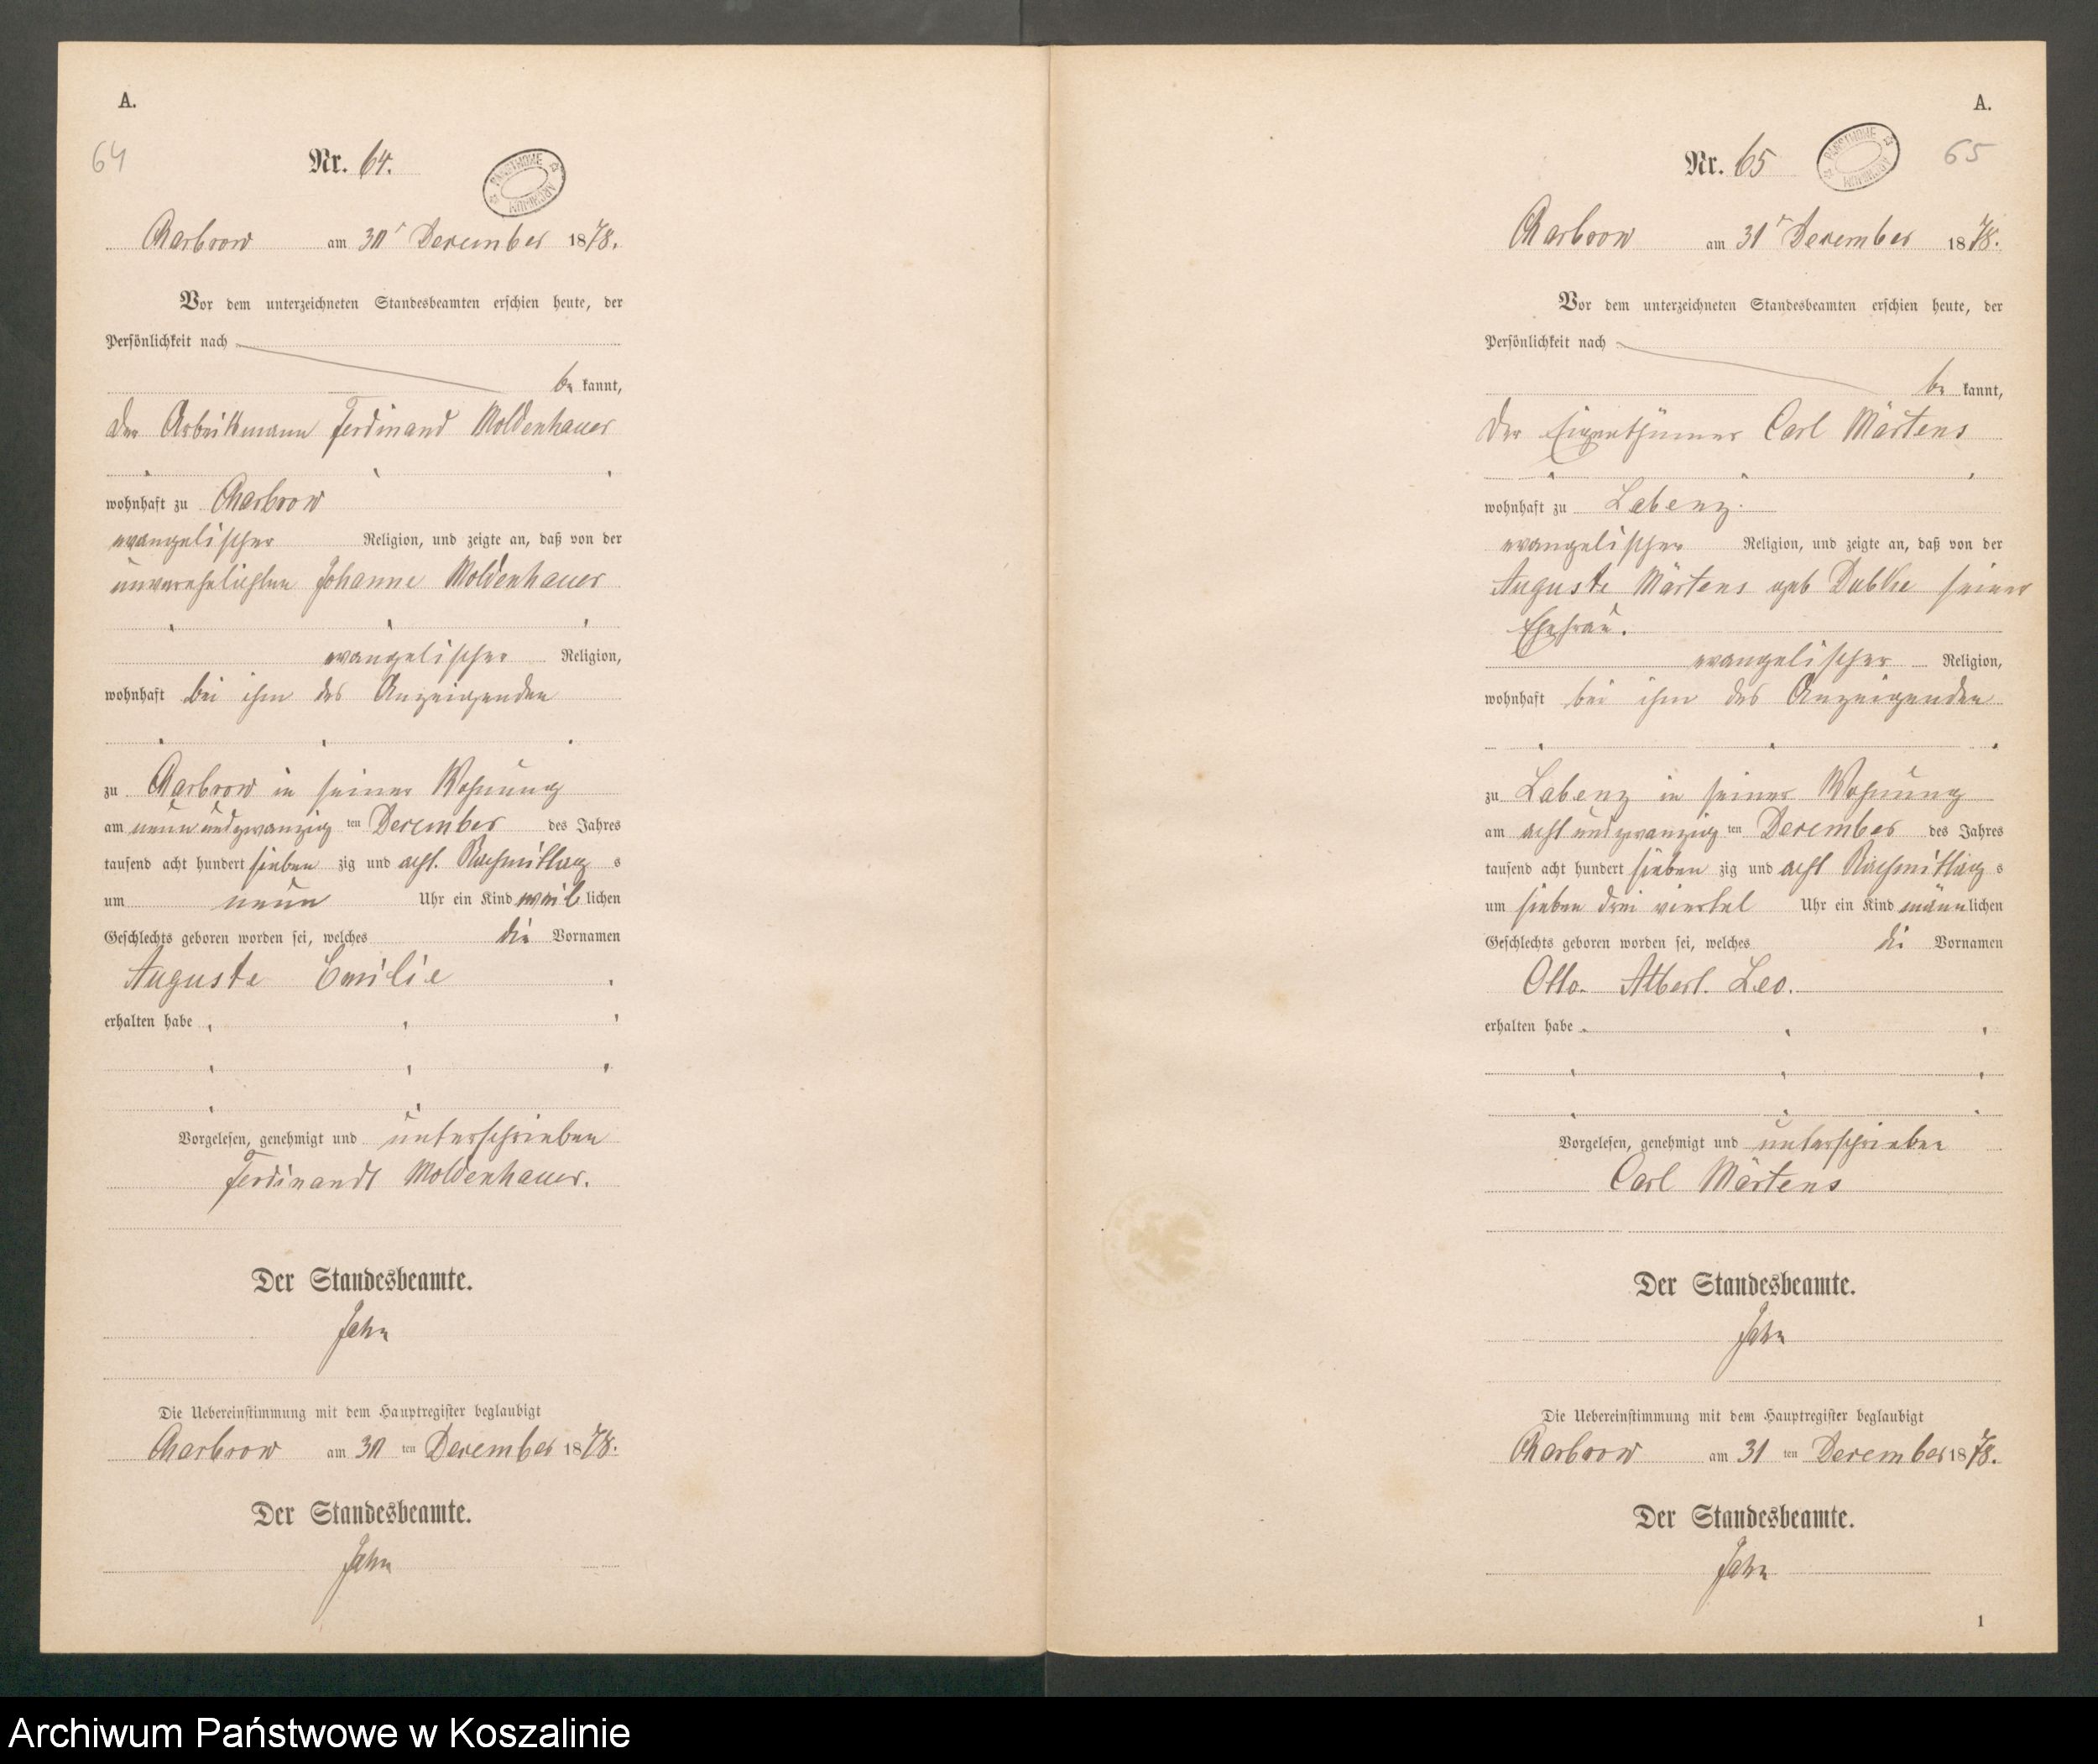 A.
64
Nr. 64.
PAŃSTWOWE ARCHIWUM
Charbrow am 30t December 1878.
Vor dem unterzeichneten Standesbeamten erschien heute, der
Persönlichkeit nach
be kannt,
der Arbeitsmann Ferdinand Moldenhauer
wohnhaft zu Charbrow
evangelischer Religion, und zeigte an, daß von der
unverehelichten Johanne Moldenhauer
evangelischer Religion,
wohnhaft bei ihm des Anzeigenden
zu Charbrow in seiner Wohnung
am neun und zwanzig ten December des Jahres
tausend acht hundert sieben zig und acht. Nachmittag s
um neun Uhr ein Kind weib lichen
Geschlechts geboren worden sei, welches die Vornamen
Auguste Emilie
erhalten habe
Vorgelesen, genehmigt und unterschrieben
Ferdinandt Moldenhauer.
Der Standesbeamte.
Jahn
Die Uebereinstimmung mit dem Hauptregister beglaubigt
Charbrow am 30 ten December 1878.
Der Standesbeamte.
Jahn
A.
65
Nr. 65
PAŃSTWOWE ARCHIWUM
Charbrow am 31t December 1878.
Vor dem unterzeichneten Standesbeamten erschien heute, der
Persönlichkeit nach
be kannt,
der Eigenthümer Carl Märtens
wohnhaft zu Labenz.
evangelischer Religion, und zeigte an, daß von der
Auguste Märtens geb Dubke seiner
Ehefrau.
evangelischer Religion,
wohnhaft bei ihm des Anzeigenden
zu Labenz in seiner Wohnung
am acht und zwanzig ten December des Jahres
tausend acht hundert sieben zig und acht Nachmittag s
um sieben drei viertel Uhr ein Kind männlichen
Geschlechts geboren worden sei, welches die Vornamen
Otto. Albert. Leo.
erhalten habe
Vorgelesen, genehmigt und unterschrieben
Carl Märtens
Der Standesbeamte.
Jahn
Die Uebereinstimmung mit dem Hauptregister beglaubigt
Charbrow am 31 ten December 1878.
Der Standesbeamte.
Jahn
1
Archiwum Państwowe w Koszalinie